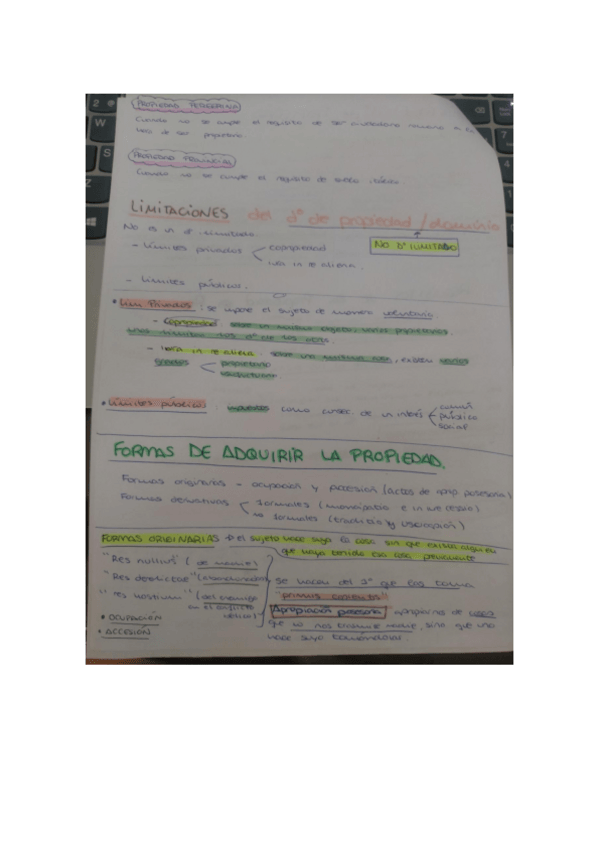 PROPIEDAD PEREGRINA
Cuando no se cumple el requisito de ser ciudadano romano a la
hora de ser propietario.
PROPIEDAD PROVINCIAL
Cuando no se cumple el requisito de suelo itálico
LIMITACIONES del dº de propiedad / dominio
No es un dº ilimitado
NO Dº ILIMITADO
- Límites privados copropiedad
iura in re aliena.
- Límites públicos.
• Lím. Privados: se impone el sujeto de manera voluntaria.
- Copropiedad sobre un mismo objeto, varios propietarios.
unos limitan sus dº en los otros.
- Iura in re aliena: sobre una misma cosa, existen varios
sujetos propietario
usufructuario
• Límites públicos: impuestos como consec. de un interés común
público
social
FORMAS DE ADQUIRIR LA PROPIEDAD.
Formas originarias - ocupación y accesión (actos de aprop posesoria)
Formas derivativas formales (mancipatio e in iure cessio)
no formales (traditio y usucapión)
FORMAS ORIGINARIAS → el sujeto hace suya la cosa sin que exista alguien
que haya tenido esa cosa previamente
"Res nullius" (de nadie)
"Res derelictae" (abandonadas) se hacen del 1º que las toma
"res hostium" (del enemigo "primus capientis"
en el conflicto bélico) Apropiación posesoria: apropiarse de cosas
• OCUPACIÓN que no nos transmite nadie, sino que uno
• ACCESIÓN hace suyo